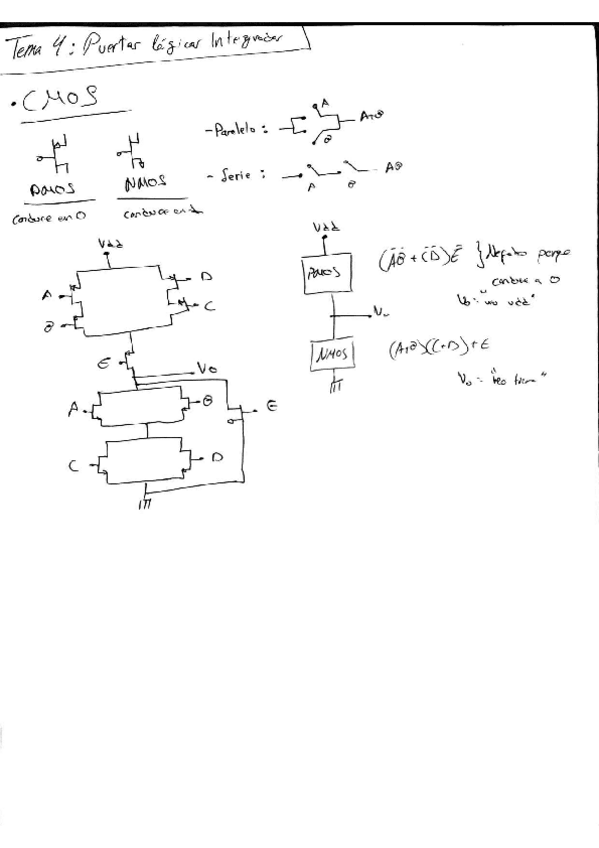 Tema 4: Puertas lógicas Integradas
• CMOS
- Paralelo: A B A+B
- Serie: A B AB
PMOS NMOS
conduce en 0 conduce en 1
Vdd
A D
B C
E Vo
A B E
C D
Vdd
PMOS (A̅B̅ + C̅D̅)E̅ } Negado porque
conduce a 0
Vo = "veo vdd"
Vo
NMOS (A+B)(C+D)+E
Vo = "veo tierra"